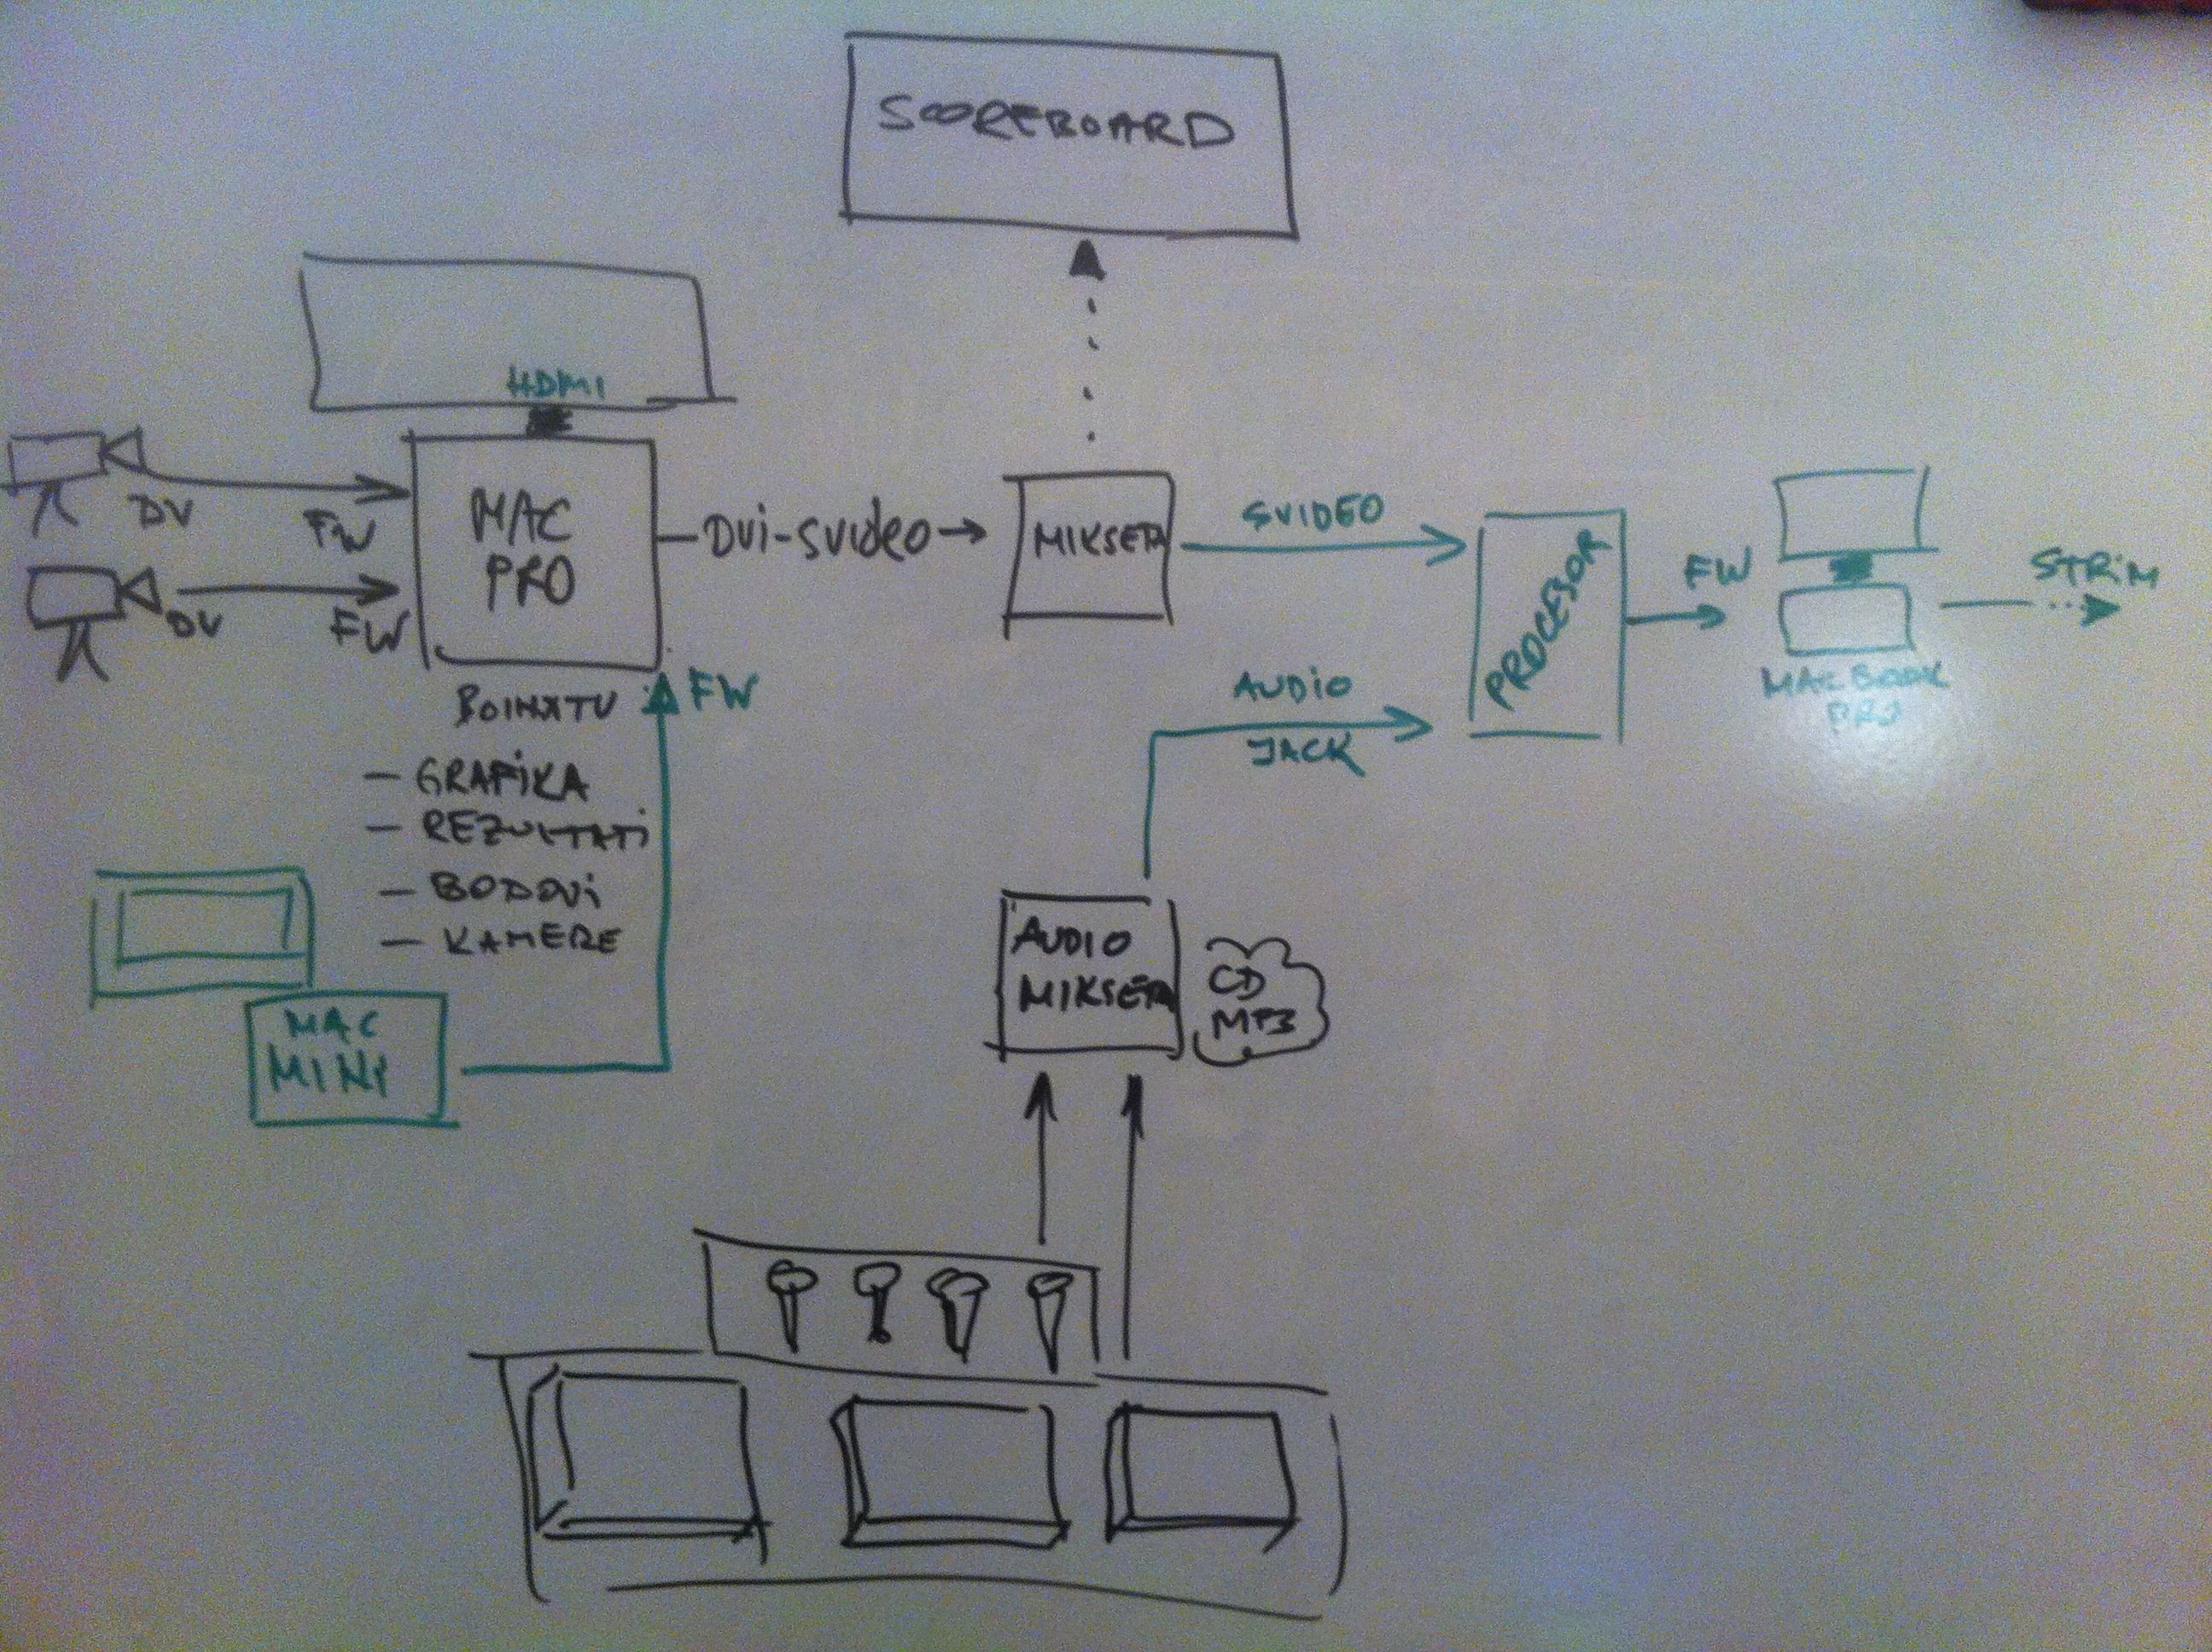 SCOREBOARD
HDMI
DV
FW
DV
FW
MAC
PRO
DVi-SVideo
MIKSETA
SVIDEO
PROCESOR
FW
STRiM
MAC BOOK
PRO
BOINXTV
FW
AUDiO
JACK
- GRAFiKA
- REZULTATi
- BODOVi
- KAMERE
MAC
MINI
AUDIO
MIKSETA
CD
MP3